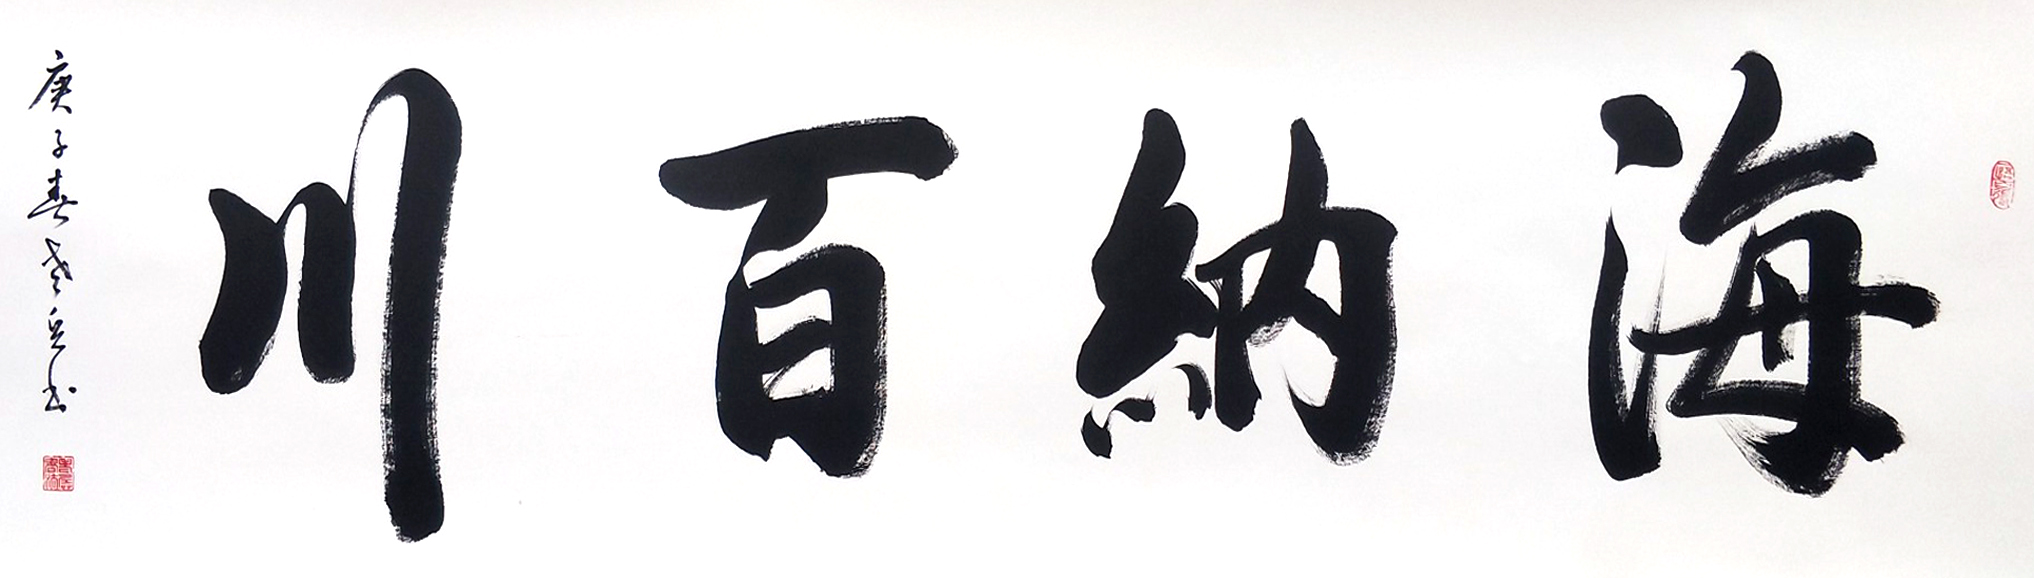 海納百川
庚子春